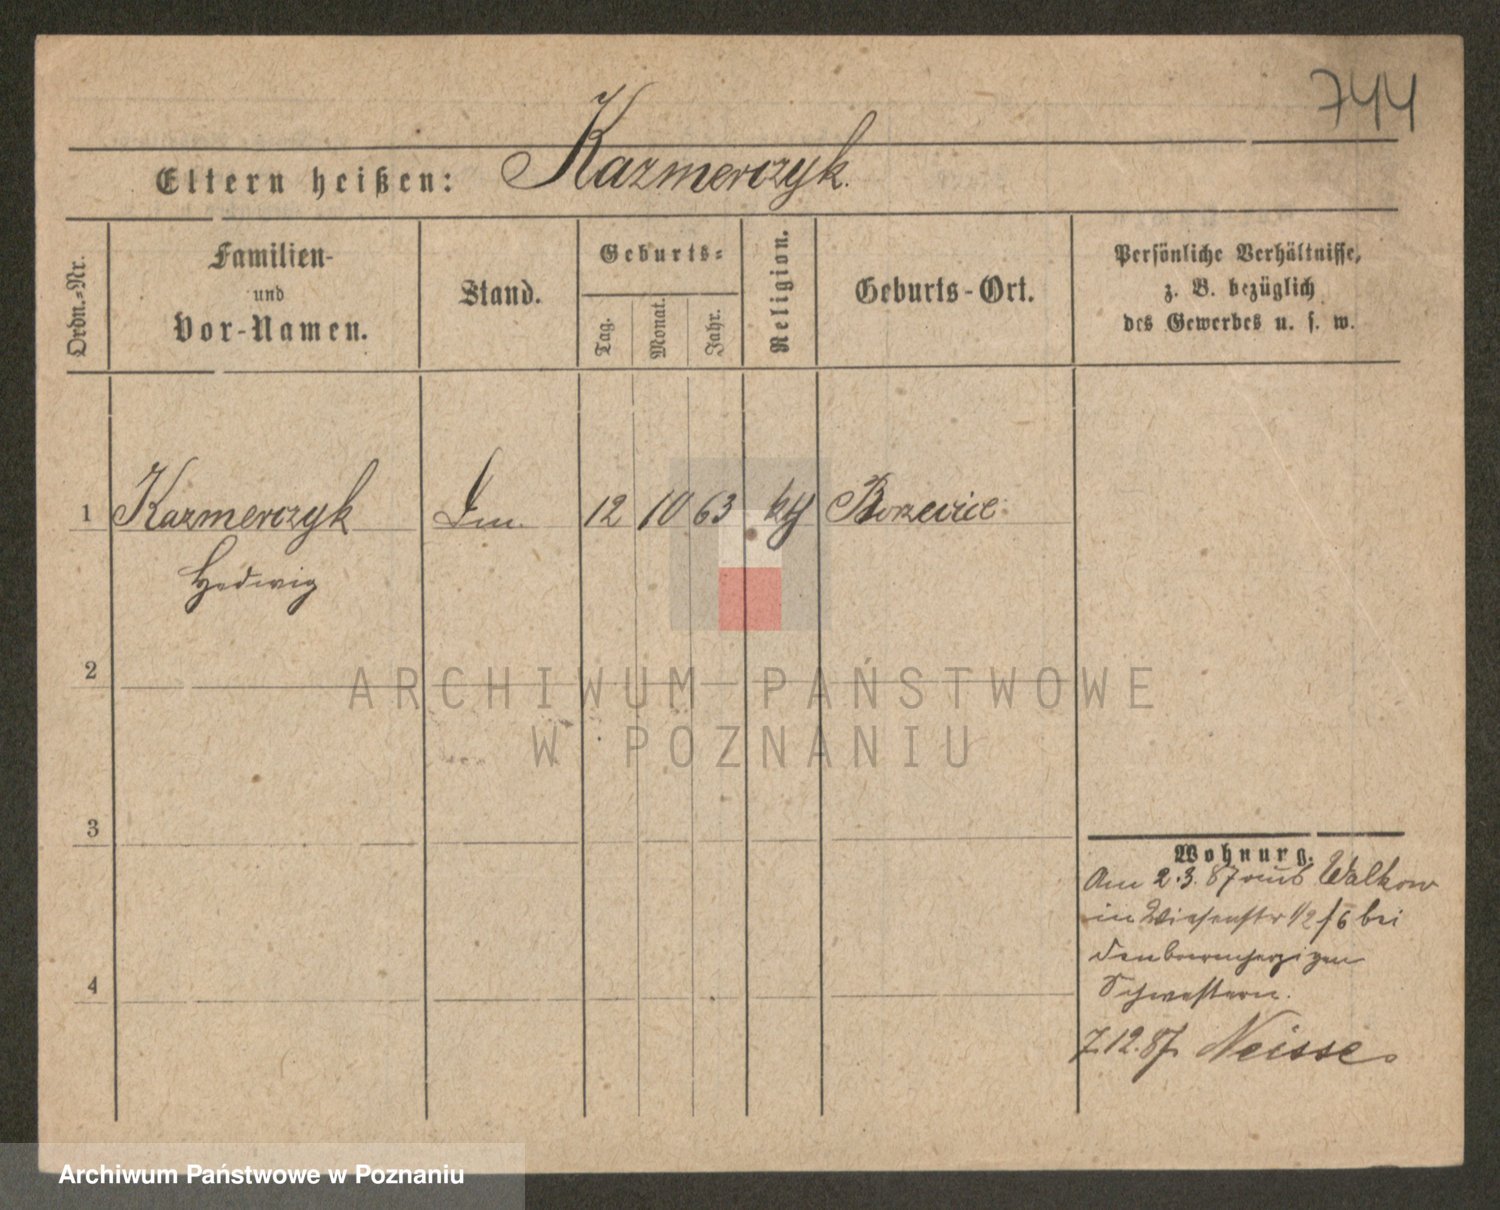 744
Eltern heißen: Kazmerczyk.
Ordn.=Nr.
Familien-
und
Vor-Namen.
Stand.
Geburts=
Tag.
Monat.
Jahr.
Religion.
Geburts-Ort.
Persönliche Verhältnisse,
z. B. bezüglich
des Gewerbes u. s. w.
1 Kazmerczyk 12 10 63 kth
Hedwig
2
ARCHIWUM PAŃSTWOWE
W POZNANIU
3
Wohnung.
Am 2.3.87 aus Walkow
in Wiesenstr 1/2 / 6 bei
den barmherzigen
4
Schwestern.
7.12.87. Neisse.
Archiwum Państwowe w Poznaniu